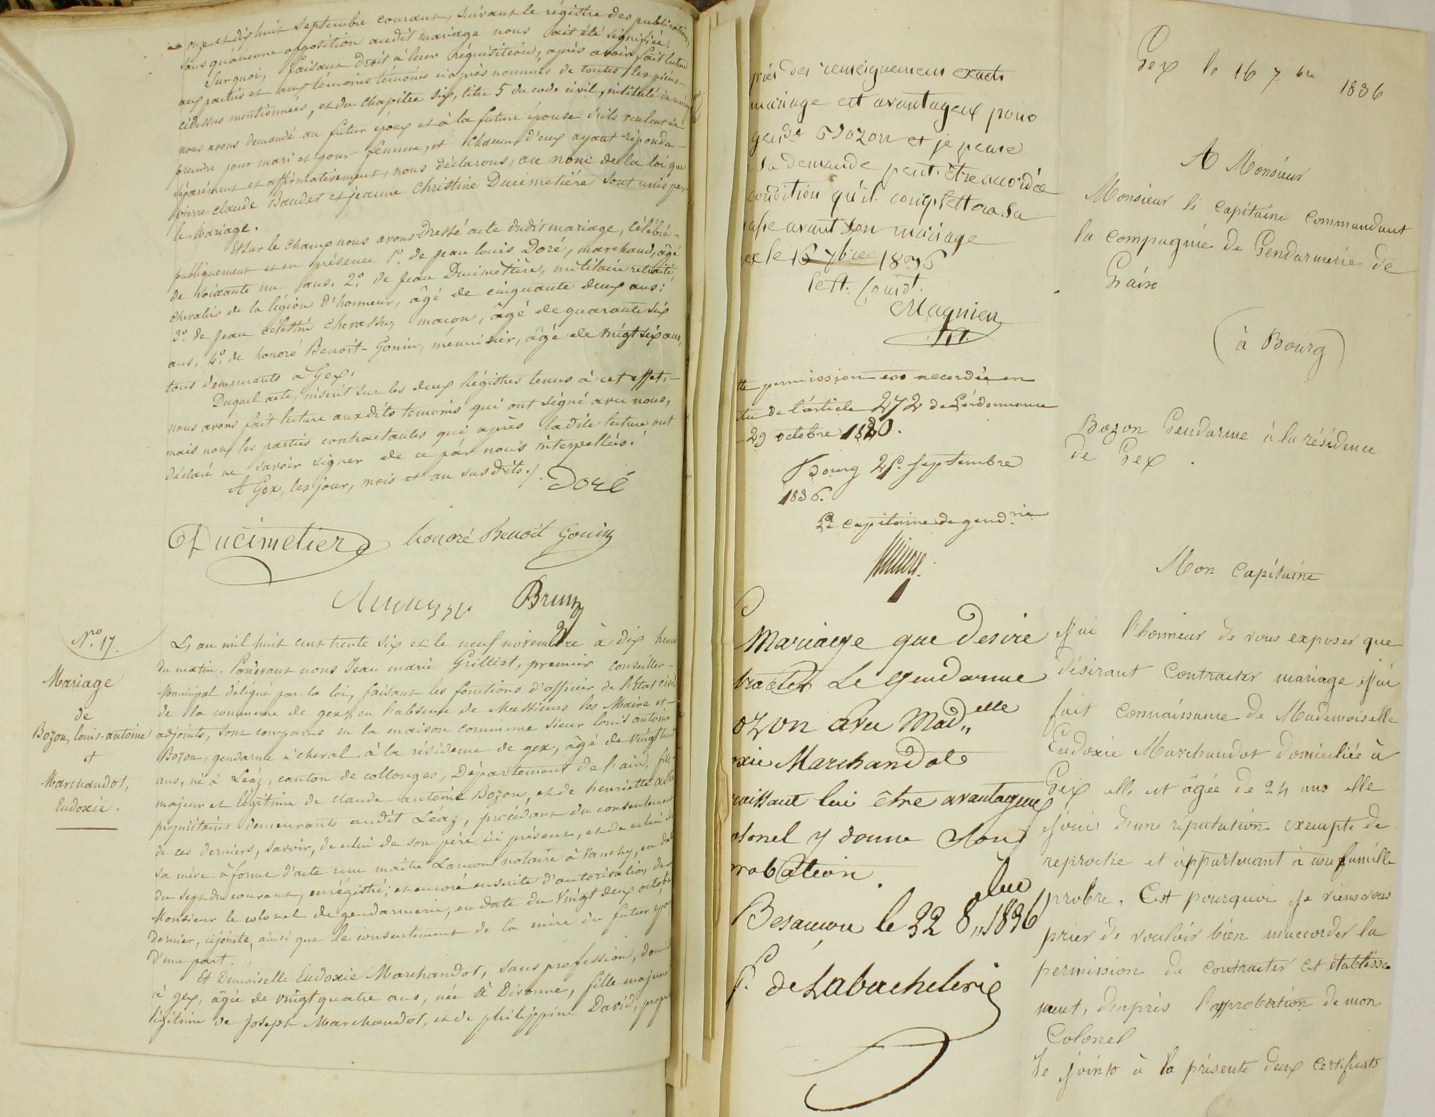 onze et dix huit Septembre courant, suivant le régistre des publications,
sans qu'aucune opposition audit mariage nous ait été signifiée.
Sur quoi, faisant droit à leur réquisition, après avoir fait lecture
aux parties et aux témoins ci après nommés de toutes les pièces
cidessus mentionnées, et du chapitre six, titre 5 du code civil, intitulé du mariage
nous avons demandé au futur époux et à la future épouse s'ils veulent se
prendre pour mari et pour femme, et chacun d'eux ayant répondu
séparément et affirmativement, nous déclarons, au nom de la loi que
pierre claude Baudet et jeanne christine Ducimetière sont unis par
le mariage.
Et sur le champ nous avons dressé acte dudit mariage, célébré
publiquement et en présence 1º de jean louis Doré, marchand, âgé
de soixante un ans, 2º de jean Ducimetière, militaire retraité
chevalier de la légion d'honneur, âgé de cinquante deux ans;
3º de jean célestin chevassus maçon, âgé de quarante six
ans, 4º de honoré Benoit-Gonin, ménuisier, âgé de vingt six ans,
tous demeurants à Gex.
Duquel acte, inscrit sur les deux Régistres tenus à cet effet,
nous avons fait lecture auxdits témoins qui ont signé avec nous,
mais non les parties contractantes qui après ladite lecture ont
déclaré ne savoir signer de ce par nous interpellés.
A Gex, les jour, mois et an susdits.
Doré
Ducimetier honoré Benoit Gonin
Brun
Nro. 17.
Mariage
de
Bozon, louis antoine
et
Marchandot,
Eudoxie.
L'an mil huit cent trente six et le neuf novembre à dix heures
du matin. Pardevant nous Jean marie Grilliet, premier conseiller
Municipal délégué par la loi, faisant les fonctions d'officier de l'Etat civil
de la commune de gex, en l'absence de Messieurs les Maire et
adjoints, sont comparus en la maison commune sieur louis antoine
Bozon, gendarme à cheval à la résidence de gex, âgé de vingt huit
ans, né à Léaz, canton de collonges, Département de l'ain, fils
majeur et légitime de claude antoine Bozon, et de henriette
propriétaires demeurants audit Léaz, procédant du consentement
de ces derniers, savoir, de celui de son père ici présent, et de celui de
sa mère à forme d'acte reçu maître Lançon notaire à Vanchy, en date
du sept du courant, enregistré; et encore ensuite d'autorisation de
Monsieur le colonel de gendarmerie, en date du vingt deux octobre
dernier, ci jointe, ainsi que le consentement de la mère du futur époux
d'une part.
Et Demoiselle Eudoxie Marchandot, sans profession, dom
à gex, âgée de vingt quatre ans, née à Divonne, fille majeure
légitime de Joseph Marchandot, et de philippine David, prop
près des renseignemens exacts
mariage est avantageux pour
gend.e Bozon et je pense
sa demande peut être accordée
condition qu'il complettera sa
avant son mariage
ex le 16 7bre 1836
le Lt. Comdt.
Magnien
tte permission est accordée en
tu de l'article 272 de l'ordonnance
29 octobre 1820.
Bourg 21 septembre
1836.
Le capitaine de gend.rie
Mariage que desire
tracter Le Gendarme
ozon avec Mad.elle
oxie Marchandot
raissant lui être avantageux
olonel y donne Son
robation.
Besançon le 22 8bre 1836
de Labachelerie
Gex le 16 7bre 1836
A Monsieur
Monsieur le Capitaine Commandant
la compagnie de Gendarmerie de
l'ain
à Bourg
Bozon Gendarme à la résidence
de Gex.
Mon Capitaine
J'ai l'honneur de vous exposer que
désirant Contracter mariage J'ai
fait connaissance de Mademoiselle
Eudoxie Marchandot domiciliée à
Gex elle est âgée de 24 ans elle
Jouie d'une réputation exempte de
reproche et appartenant à une famille
probre. C'est pourquoi Je viens vous
prier de vouloir bien m'accorder la
permission de contracter cet établisse
ment, d'après l'approbation de mon
Colonel
Je joints à la présente deux certificats